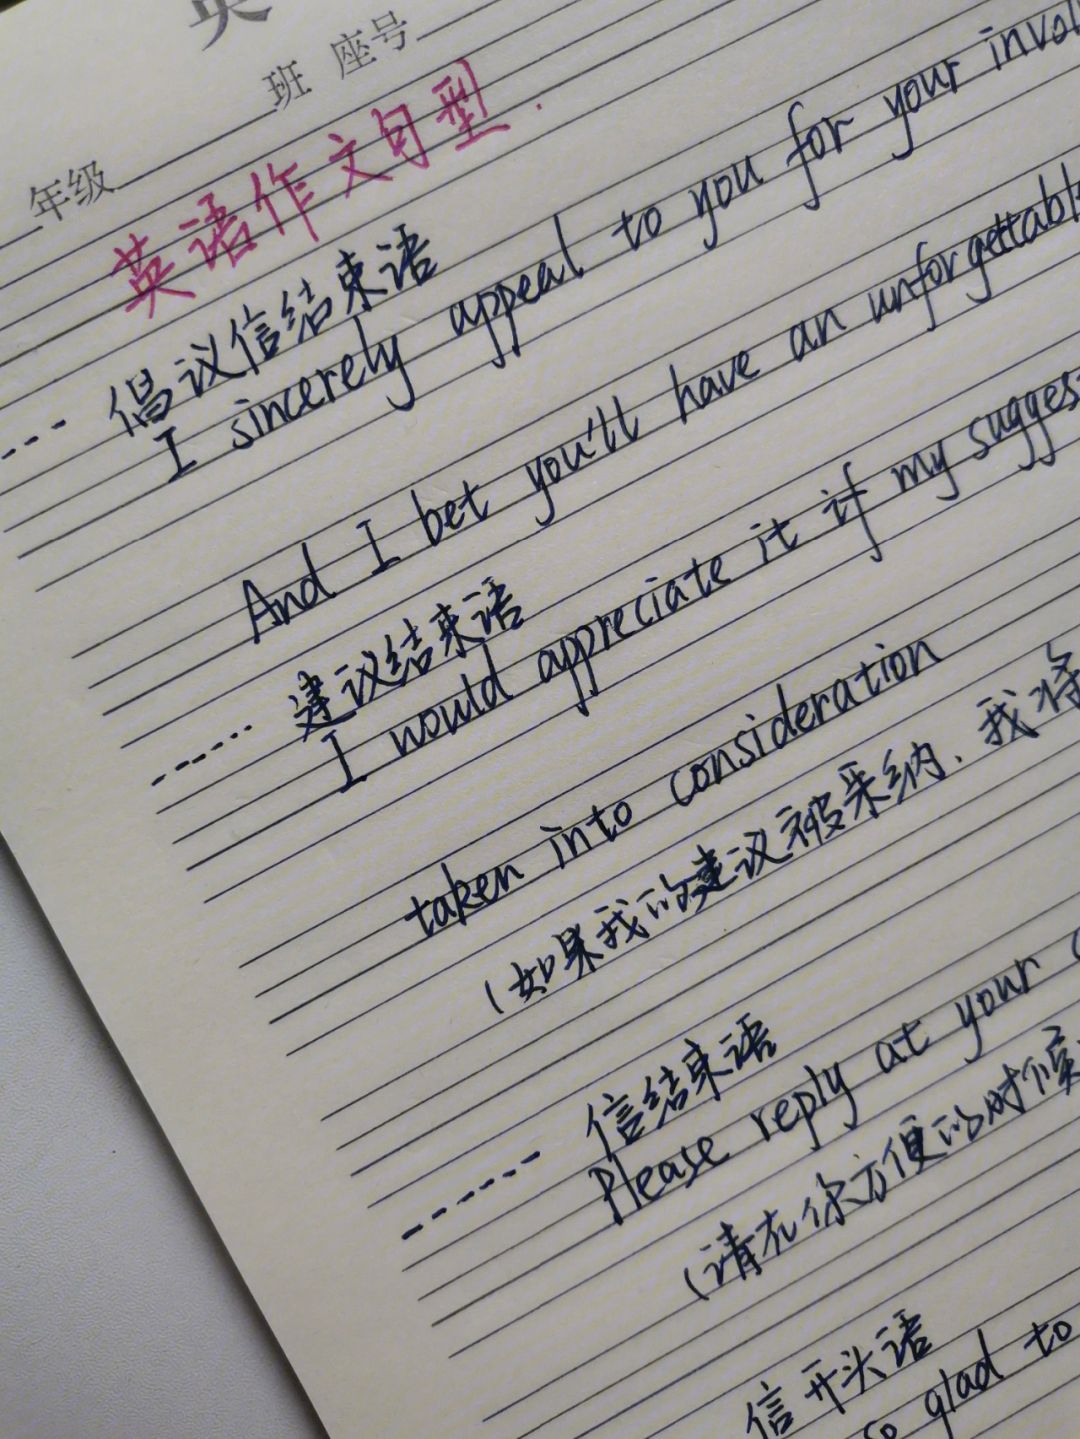 英
年级 班 座号
英语作文句型.
--- 倡议信结束语
I sincerely appeal to you for your
And I bet you'll have an
----- 建议结束语
I would appreciate it if my
taken into consideration
(如果我的建议被采纳. 我将
----- 信结束语
Please reply at your
(请在你方便的时候
信开头语
glad to